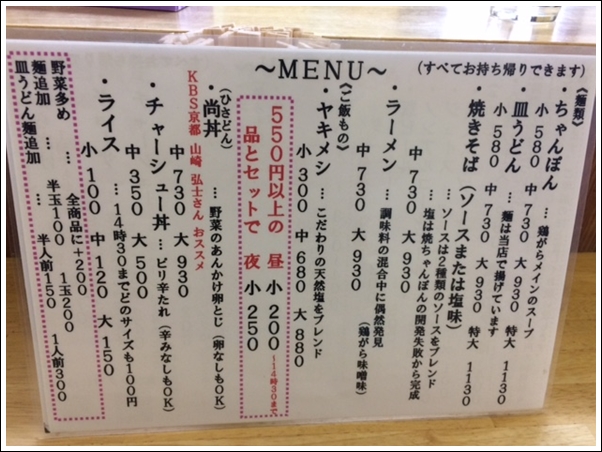 ～MENU～
(すべてお持ち帰りできます)
《麺類》
・ちゃんぽん … 鶏がらメインのスープ
小 580 中 730 大 930 特大 1130
・皿うどん … 麺は当店で揚げています
小 580 中 730 大 930 特大 1130
・焼きそば (ソースまたは塩味)
… ソースは2種類のソースをブレンド
… 塩は焼ちゃんぽんの開発失敗から完成
中 730 大 930
・ラーメン … 調味料の混合中に偶然発見
(鶏がら味噌味)
中 730 大 930
《ご飯もの》
・ヤキメシ … こだわりの天然塩をブレンド
小 300 中 680 大 880
550円以上の 昼 小 200 ～14時30まで
品とセットで 夜 小 250
(ひさどん)
・尚丼 … 野菜のあんかけ卵とじ (卵なしもOK)
中 730 大 930
KBS京都 山崎 弘士さん おススメ
・チャーシュー丼 … ピリ辛たれ (辛みなしもOK)
中 350 大 500
・ライス … 14時30までどのサイズも100円
小 100 中 120 大 150
野菜多め … 全商品に+200
麺追加 … 半玉100 1玉200
皿うどん麺追加 … 半人前150 1人前300